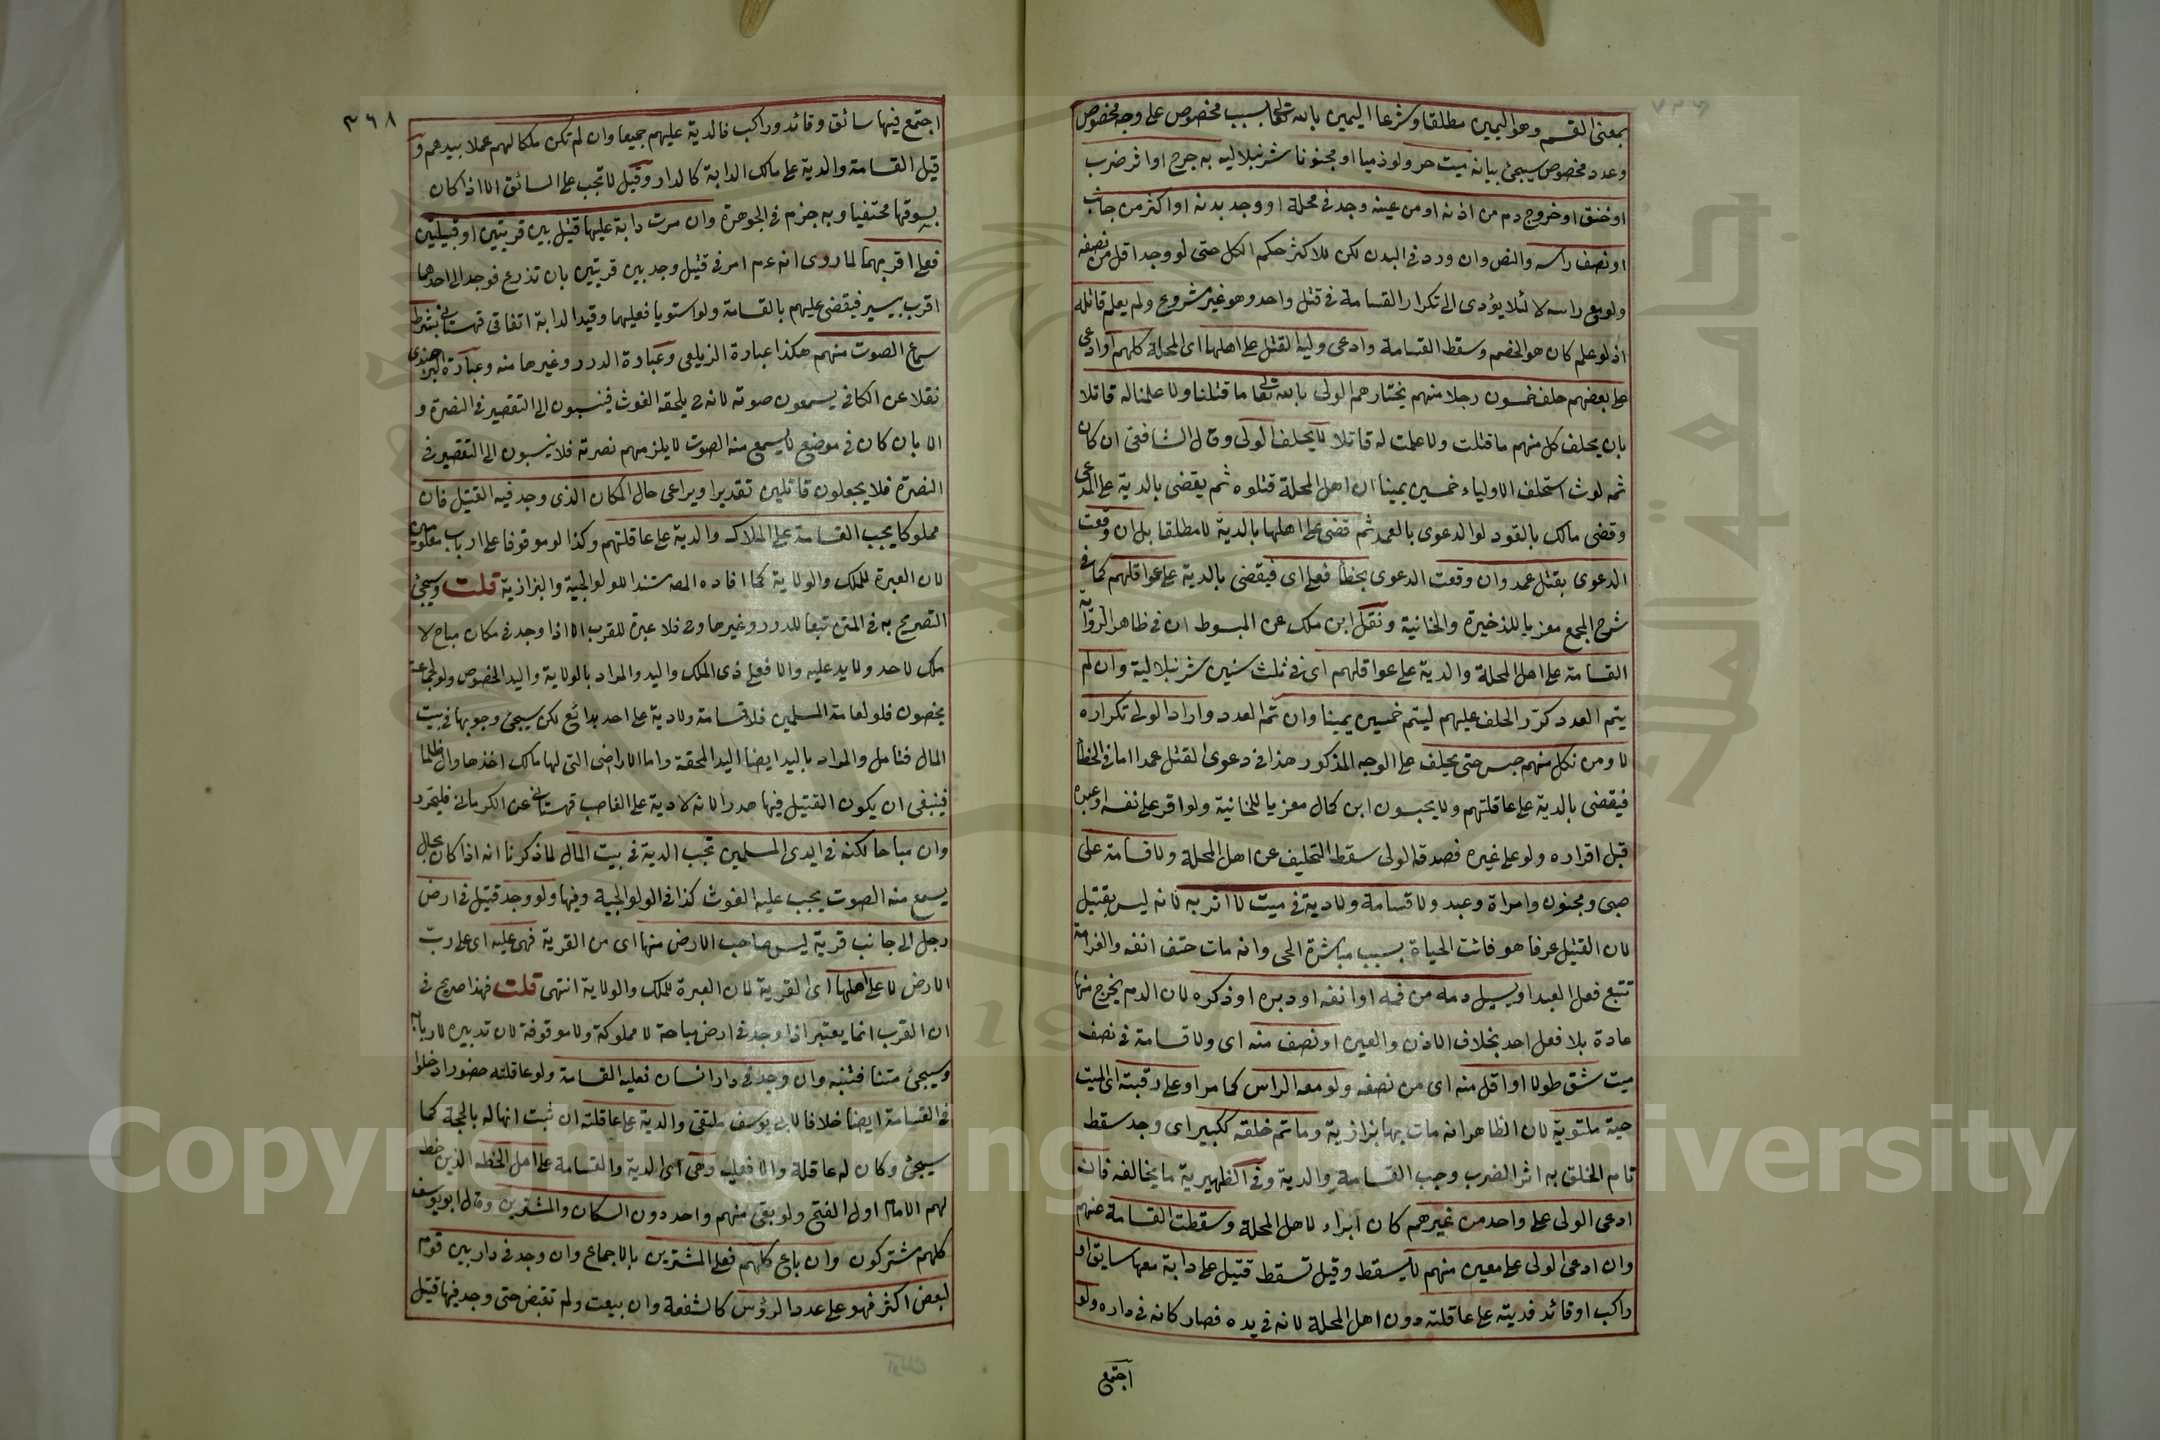 بمعنى القسم وهو اليمين مطلقا وشرعا اليمين بالله تعالى بسبب مخصوص على وجه مخصوص
وعدد مخصوص سيجئ بيانه ميت حر ولو ذميا او مجنونا شرنبلاليه به جرح او اثر ضرب
او خنق او خروج دم من اذنه او من عينه وجد في محلة او وجد بدنه او اكثر من جانب
او نصف راسه والنص وان ورد في البدن لكن للاكثر حكم الكل حتى لو وجد اقل من نصفه
ولو مع راسه لا لئلا يؤدى الى تكرار القسامة في قتل واحد وهو غير مشروع ولم يعلم قاتله
اذ لو علم كان هو الخصم وسقط القسامة وادعى وليه القتل على اهلها اى المحلة كلهم او ادعى
على بعضهم حلف خمسون رجلا منهم يختارهم الولى بالله تعالى ما قتلنا ولا علمنا له قاتلا
بان يحلف كل منهم ما قتلت ولا علمت له قاتلا لا يحلف الولى وقال الشافعى ان كان
ثمه لوث استحلف الاولياء خمسين يمينا ان اهل المحلة قتلوه ثم يقضى بالدية على المدعى
وقضى مالك بالقود لو الدعوى بالعمد ثم قضى على اهلها بالدية لا مطلقا بل ان وقعت
الدعوى بقتل عمد وان وقعت الدعوى بخطأ فعلى اى فيقضى بالدية على عواقلهم كما في
شرح المجمع معزيا للذخيرة والخانية ونقل ابن ملك عن المبسوط ان في ظاهر الرواية
القسامة على اهل المحلة والدية على عواقلهم اى في ثلث سنين شرنبلالية وان لم
يتم العدد كرر الحلف عليهم ليتم خمسين يمينا وان تم العدد واراد الولى تكراره
لا ومن نكل منهم حبس حتى يحلف على الوجه المذكور هذا في دعوى القتل عمدا اما في الخطأ
فيقضى بالدية على عاقلتهم ولا يحبسون ابن كمال معزيا للخانية ولو اقر على نفسه او عبده
قبل اقراره ولو على غيره فصدقه الولى سقط التحليف عن اهل المحلة ولا قسامة على
صبى ومجنون وامراة وعبد ولا قسامة ولا دية في ميت لا اثر به لانه ليس بقتيل
لان القتيل عرفا هو فائت الحياة بسبب مباشرة الحى وانه مات حتف انفه والغرامة
تتبع فعل العبد او يسيل دمه من فمه او انفه او دبره او ذكره لان الدم يخرج منها
عادة بلا فعل احد بخلاف الاذن والعين او نصف منه اى ولا قسامة في نصف
ميت شق طولا او اقل منه اى من نصفه ولو معه الراس كما مر او على رقبته اى الميت
حية ملتوية لان الظاهر انه مات بها بزازية وما تم خلقه ككبير اى وجد سقط
تام الخلق به اثر الضرب وجب القسامة والدية وفي الظهيرية ما يخالفه فان
ادعى الولى على واحد من غيرهم كان ابراء لاهل المحلة وسقطت القسامة عنهم
وان ادعى الولى على معين منهم لا يسقط وقيل تسقط قتيل على دابة معها سايق او
راكب او قائد فديته على عاقلته دون اهل المحلة لانه في يده فصار كانه في داره ولو
اجتمع
٣٦٨
اجتمع فيها سائق وقائد وراكب فالدية عليهم جميعا وان لم تكن ملكا لهم عملا بيدهم و
قيل القسامة والدية على مالك الدابة كالدار وقيل لا تجب على السائق الا اذا كان
يسوقها مختفيا وبه جزم في الجوهرة وان مرت دابة عليها قتيل بين قريتين او قبيلتين
فعلى اقربهما لما روى انه عم امر في قتيل وجد بين قريتين بان تذرع فوجد الى احدهما
اقرب بيسير فيقضى عليهم بالقسامة ولو استويا فعليهما وقيد الدابة اتفاقى قهستانى بشرط
سماع الصوت منهم هكذا عبارة الزيلعى وعبارة الدرر وغيرها منه وعبارة البرجندى
نقلا عن الكافي يسمعون صوته لانه ح يلحقه الغوث فينسبون الى التقصير في النصرة و
الا بان كان في موضع لا يسمع منه الصوت لا يلزمهم نصرته فلا ينسبون الى التقصير في
النصرة فلا يجعلون قاتلين تقديرا ويراعى حال المكان الذى وجد فيه القتيل فان
مملوكا يجب القسامة على الملاك والدية على عاقلتهم وكذا لو موقوفا على ارباب معلومين
لان العبرة للملك والولاية كما افاده المصـ مستندا للولوالجية والبزازية قلت وسيجئ
التصريح به في المتن تبعا للدرر وغيرها وح فلا عبرة للقرب الا اذا وجد في مكان مباح لا
ملك لاحد ولا يد عليه والا فعلى ذى الملك واليد والمراد بالولاية واليد الخصوص ولو لجماعة
يحصون فلو لعامة المسلمين فلا قسامة ولا دية على احد بدائع لكن سيجئ وجوبها في بيت
المال فتامل والمراد باليد ايضا اليد المحقة واما الاراضى التى لها مالك اخذها وال ظلما
فينبغى ان يكون القتيل فيها هدرا لانه لا دية على الغاصب قهستانى عن الكرمانى فليحرر
وان مباحا لكنه في ايدى المسلمين تجب الدية في بيت المال لما ذكرنا انه اذا كان بحال
يسمع منه الصوت يجب عليه الغوث كذا في الولوالجية وفيها ولو وجد قتيل في ارض
رجل الى جانب قرية ليس صاحب الارض منها اى من القرية فهى عليه اى على رب
الارض لا على اهلها اى القرية لان العبرة للملك والولاية انتهى قلت فهذا صريح في
ان القرب انما يعتبر اذا وجد في ارض مباحة لا مملوكة ولا موقوفة لان تدبيره لاربابه
وسيجئ متنا فتنبه وان وجد في دار انسان فعليه القسامة ولو عاقلته حضورا دخلوا
في القسامة ايضا خلافا لابى يوسف ملتقى والدية على عاقلته ان ثبت انها له بالحجة كما
سيجئ وكان له عاقلة والا فعليه وهى اى الدية والقسامة على اهل الخطه الذين خط
لهم الامام اول الفتح ولو بقى منهم واحد دون السكان والمشترين وقال ابو يوسف
كلهم مشتركون وان باع كلهم فعلى المشترين بالاجماع وان وجد في دار بين قوم
لبعض اكثر فهو على عدد الرؤس كالشفعة وان بيعت ولم تقبض حتى وجد فيها قتيل
Copyright © King Saud University
جامعة الملك سعود